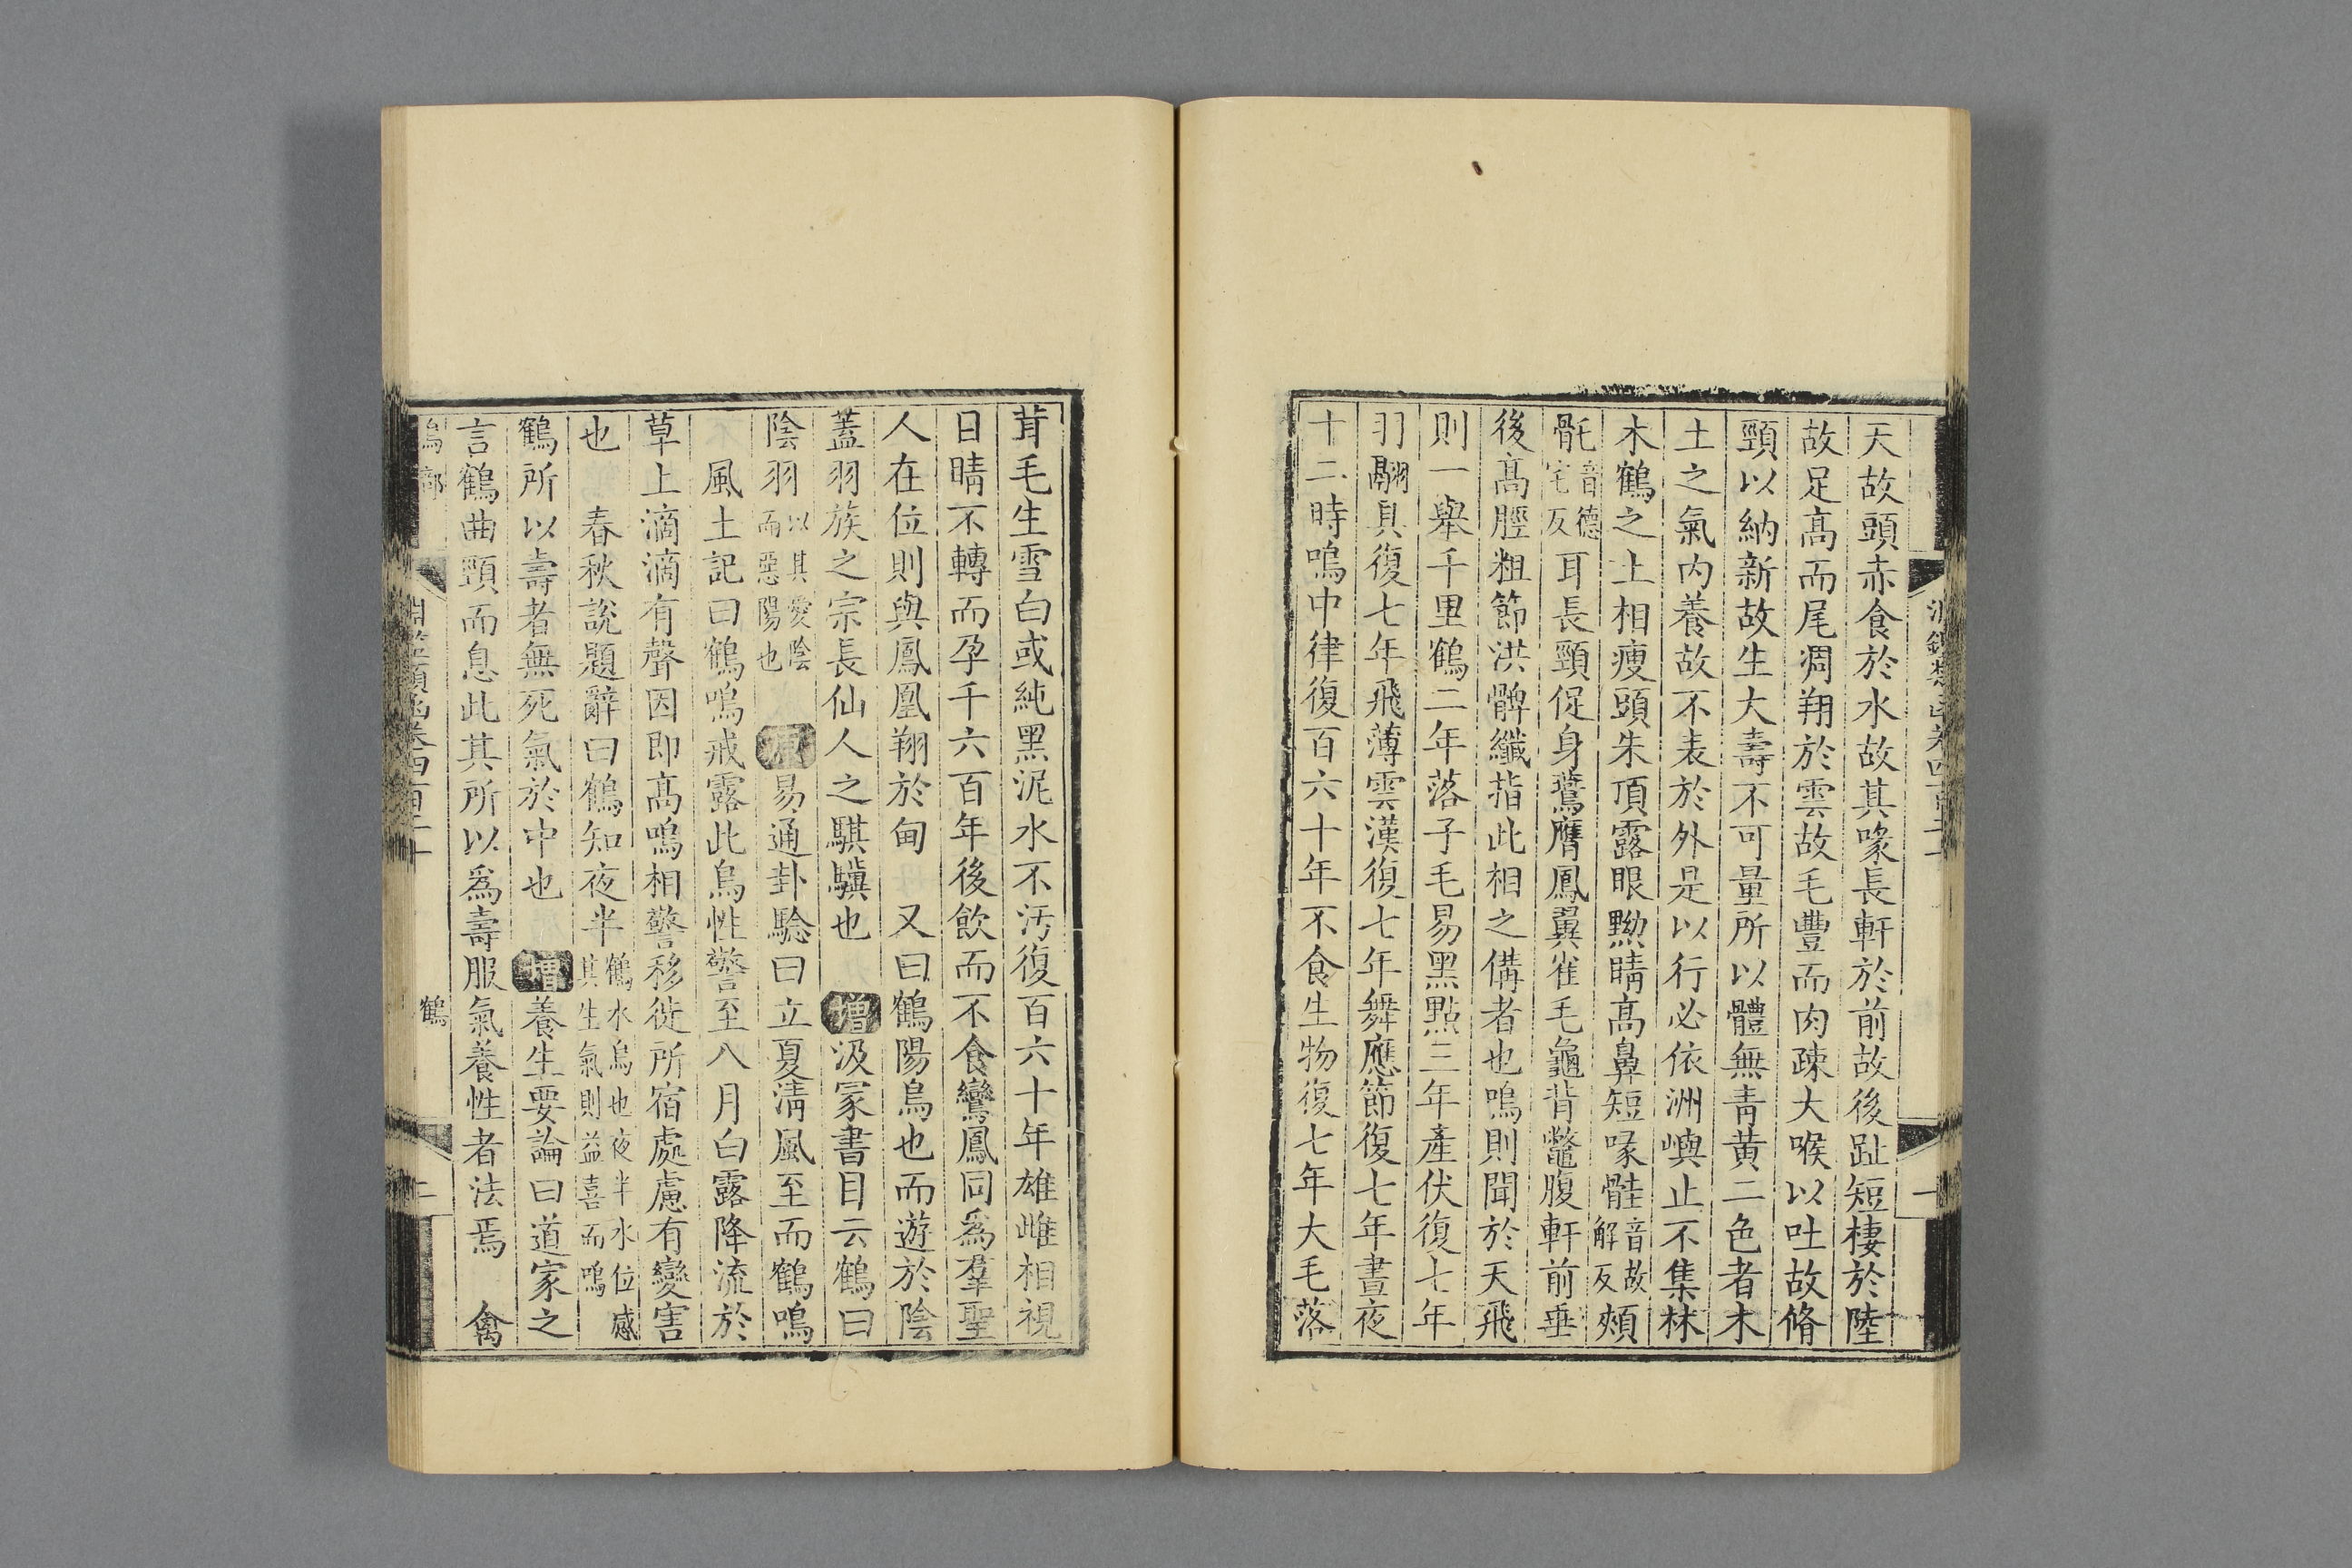 天故頭赤食於水故其喙長軒於前故後趾短棲於陸
故足高而尾凋翔於雲故毛豐而肉疎大喉以吐故脩
頸以納新故生大壽不可量所以體無青黃二色者木
土之氣內養故不表於外是以行必依洲嶼止不集林
木鶴之上相瘦頭朱頂露眼黝睛高鼻短喙䯓音故解反頰
骹音德宅反耳長頸促身鷰膺鳳翼雀毛龜背鼈腹軒前垂
後高脛粗節洪髀纖指此相之備者也鳴則聞於天飛
則一舉千里鶴二年落子毛易黑點三年產伏復七年
羽翮具復七年飛薄雲漢復七年舞應節復七年晝夜
十二時鳴中律復百六十年不食生物復七年大毛落
茸毛生雪白或純黑泥水不汚復百六十年雄雌相視
目睛不轉而孕千六百年後飲而不食鸞鳳同為羣聖
人在位則與鳳凰翔於甸 又曰鶴陽鳥也而遊於陰
蓋羽族之宗長仙人之騏驥也 增汲冢書目云鶴曰
陰羽以其愛陰而惡陽也 原易通卦驗曰立夏清風至而鶴鳴
風土記曰鶴鳴戒露此鳥性警至八月白露降流於
草上滴滴有聲因即高鳴相警移徙所宿處慮有變害
也 春秋說題辭曰鶴知夜半鶴水鳥也夜半水位感其生氣則益喜而鳴
鶴所以壽者無死氣於中也 增養生要論曰道家之
言鶴曲頸而息此其所以爲壽服氣養性者法焉 禽
淵鑑類函卷四百二十
鶴
二